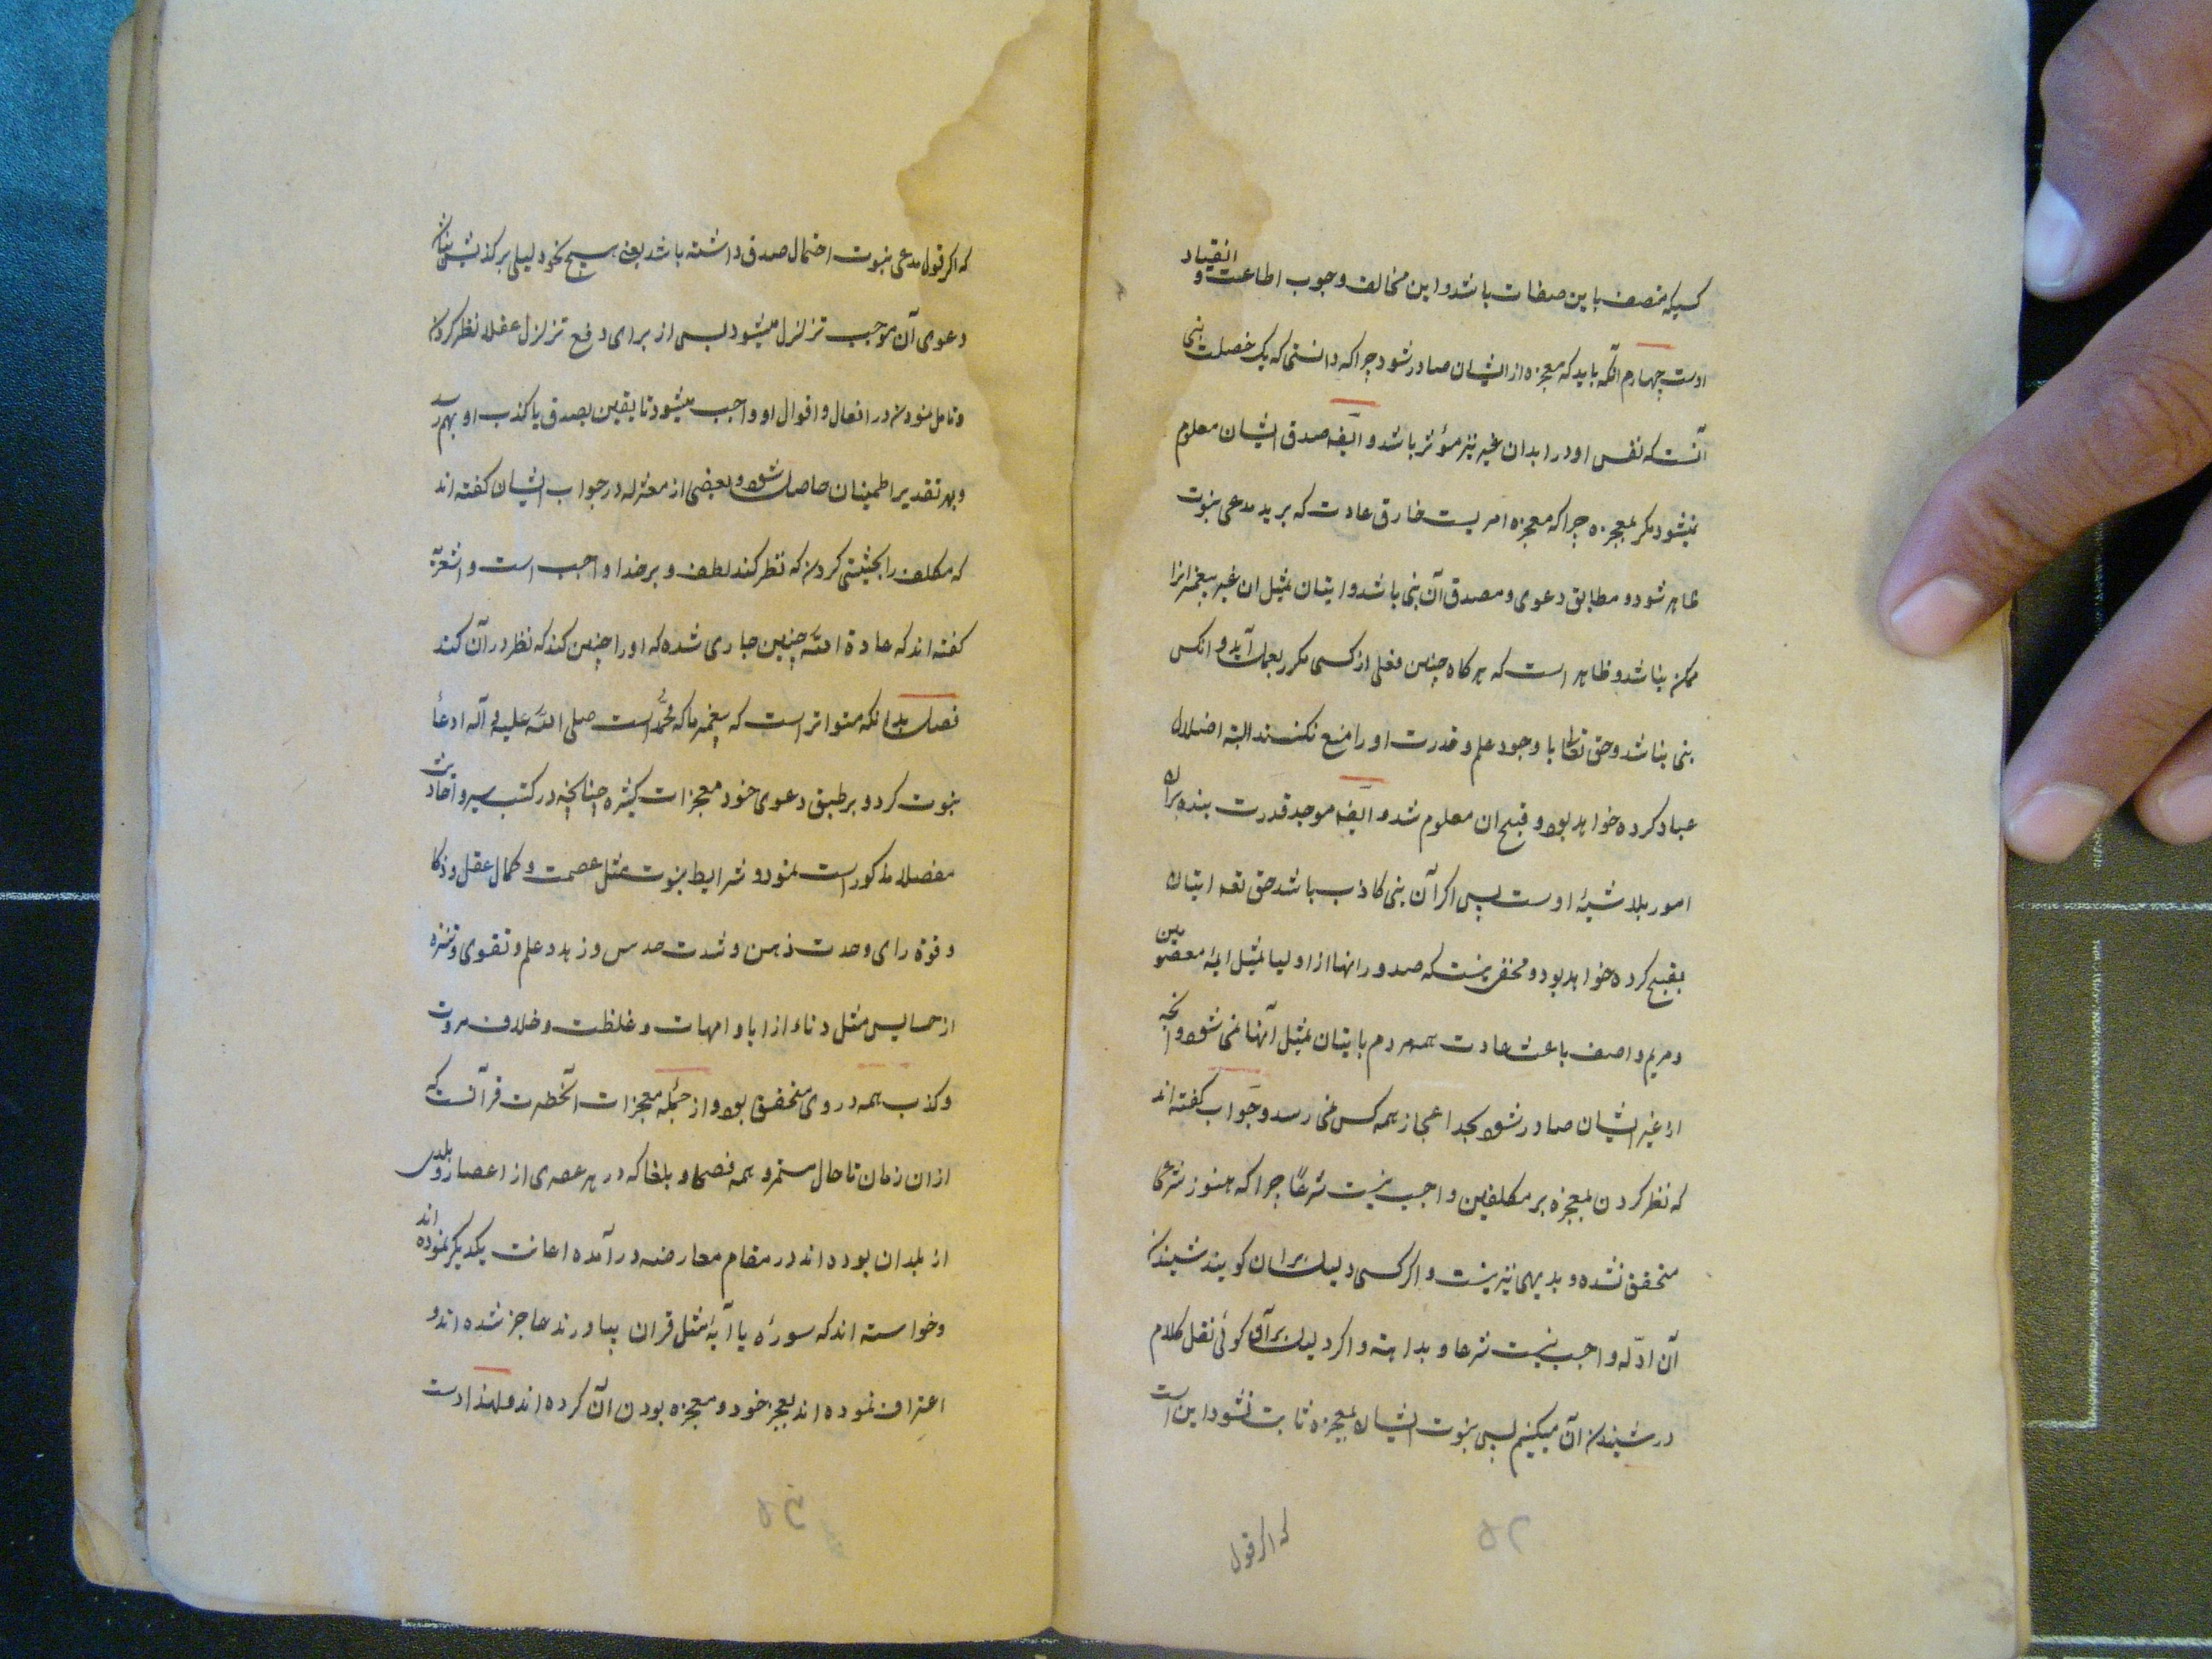 کسیکه متصف باین صفات باشد و این مخالف وجوب اطاعت و انقیاد
اوست چهارم آنکه باید که معجزه از ایشان صادر شود چرا که دانستی که یک خصلت نبی
آنست که نفس او در ابدان غیر نیز مؤثر باشد و ایضه صدق ایشان معلوم
نمیشود مکر بمعجزه چرا که معجزه امریست خارق عادت که برید مدعی نبوت
ظاهر شود و مطابق دعوی و مصدق آن نبی باشد و اتیان بمثل ان غیر پیغمبر انرا
ممکن نباشد و ظاهر است که هرکاه چنین فعلی از کسی مکرر بعمل آید و انکس
نبی نباشد و حق تعالی با وجود علم و قدرت او را منع نکند البته اضلال
عباد کرده خواهد بود و قبح ان معلوم شد و ایضه موجد قدرت بنده بران
امور بلا شبهٔ اوست پس اکر آن نبی کاذب باشد حق تعه اتیان
بقبیح کرده خواهد بود و مخفی نیست که صدور انها از اولیا مثل ایمهٔ معصومین
و مریم و اصف باعث عادت همه مردم باتیان بمثل آنها نمی شود و انچه
از غیر ایشان صادر شود بحد اعجاز همه کس نمی رسد و جواب کفته اند
که نظر کردن بمعجزه بر مکلفین واجب نیست شرعًا چرا که هنوز شرعا
متحقق نشده و بدیهی نیز نیست و اکر کسی دلیل بران کویند شنیدن
آن ادّله واجب نیست شرعا و بداهته و اکر دلیل برآن کوئی نقل کلام
در شنیدن آن میکنیم پس نبوت ایشان بمعجزه ثابت نشود این است
که اکر قول
۵۲
که اکر قول مدعی نبوت احتمال صدق داشته باشد یعنی هیچ نحو دلیلی بر کذبش نباشد
دعوی آن موجب تزلزل میشود پس از برای دفع تزلزل عقلا نظر کردن
و تامل نمودن در افعال و اقوال او واجب میشود تا یقین بصدق یا کذب او بهم رسد
و بهر تقدیر اطمینان حاصل شود و بعضی از معتزله در جواب ایشان کفته اند
که مکلف را بحیثیتی کردن که نظر کند لطف و بر خدا واجب است و اشعریّه
کفته اند که عادة اللّه چنین جاری شده که او را چنین کند که نظر در آن کند
فصل بدانکه متواتر است که پیغمبر ما که محمّد است صلی اللّه علیه و آله ادعاٴ
نبوت کرد و بر طبق دعوی خود معجزات کثیره چنانچه در کتب سیر و احادیث
مفصلا مذکور است نمود و شرایط نبوت مثل عصمت و کمال عقل و ذکا
و قوة رای و حدت ذهن و شدت حدس و زهد و علم و تقوی و تنزه
از خسایس مثل دناءٴ از ابا و امهات و غلظت و خلاف مروت
و کذب همه در وی متحقق بود و از جمله معجزات آنحضرت قرآنست که
از ان زمان تا حال مستمر و همه فصحا و بلغا که در هر عصری از اعصار و بلدی
از بلدان بوده اند در مقام معارضه در آمده اعانت یکدیکر نموده اند
و خواسته اند که سورٴه یا آیهٴ مثل قران بیاورند عاجز شده اند و
اعتراف نموده اند بعجز خود و معجزه بودن آن کرده اند و لهذا دست